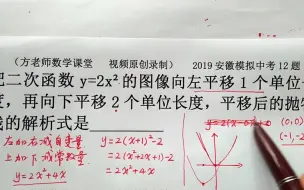 (方老师数学课堂 视频原创录制) 2019安徽模拟中考12题
把二次函数 y=2x²的图像向左平移1个单位长
度，再向下平移2个单位长度，平移后的抛物
线的解析式是
左加右减自变量
上加下减常数量
y=2x²+4x
y=2(x+1)²-2
=2(x²+2x+1)-2
=2x²+4x
(0,0)
(-1,-2